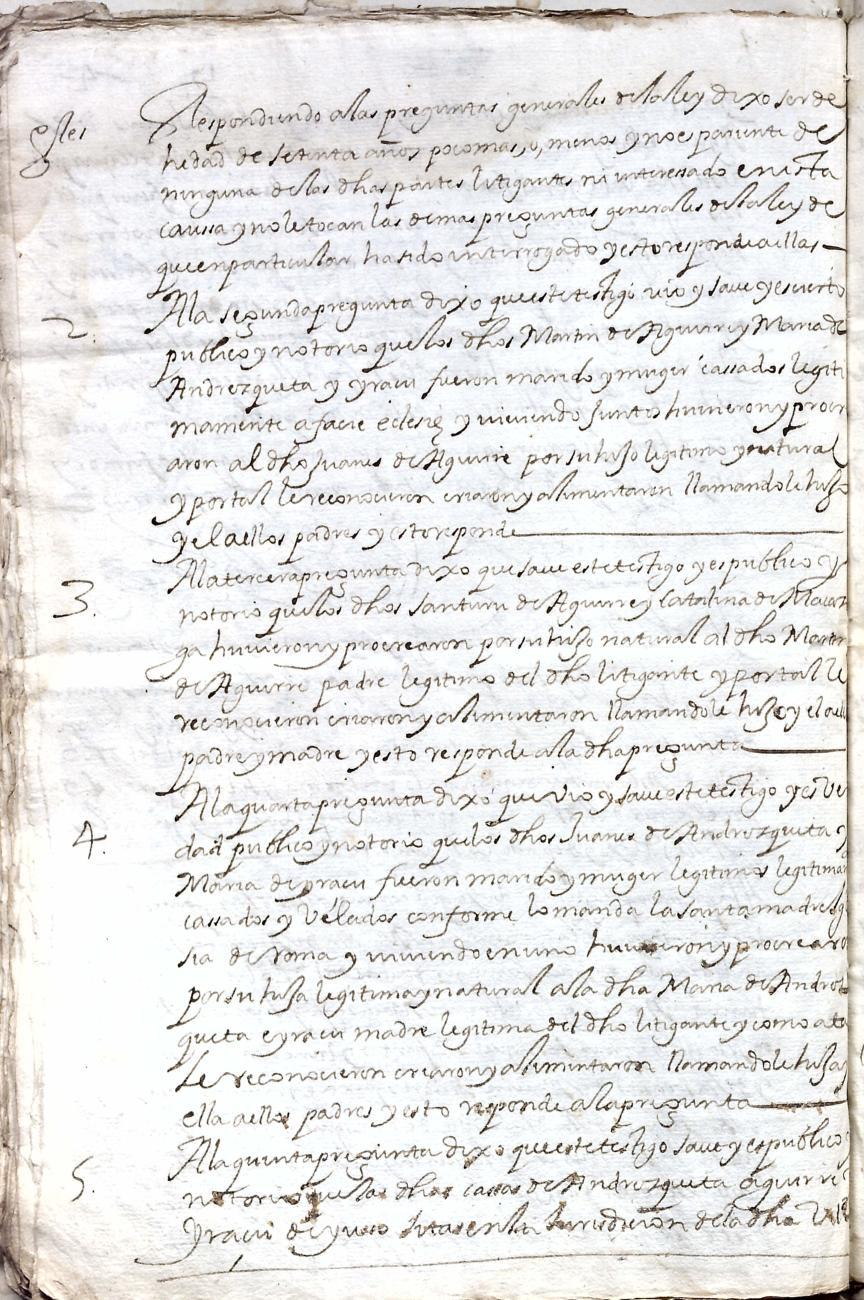 gles Respondiendo a las preguntas generales de la ley dixo ser de
hedad de setenta años poco mas, o, menos y no es pariente de
ninguna de las dhas partes litigantes ni interessado en esta
caussa y no le tocan las demas preguntas generales de la ley de
que en particular ha sido interrogado y esto responde a ellas
2. A la segunda pregunta dixo que este testigo vio y save y es cierto
publico y notorio que los dhos Martin de Aguirre y Maria de
Andrezqueta y yraeu fueron marido y muger cassados legiti
mamente a facie eclesie y viviendo juntos huvieron y procre
aron al dho Juanes de Aguirre por su hijo legitimo y natural
y por tal le reconocieron criaron y alimentaron llamandole hijo
y el a ellos padres y esto responde
3. A la tercera pregunta dixo que save este testigo y es publico y
notorio que los dhos Santuru de Aguirre y Catalina de
ga huvieron y procrearon por su hijo natural al dho Martin
de Aguirre padre legitimo del dho litigante y por tal le
reconocieron criaron y alimentaron llamandole hijo y el a ell
padre y madre y esto responde a la dha pregunta
4. A la quarta pregunta dixo que vio y save este testigo y es ver
dad publico y notorio que los dhos Juanes de Andrezqueta y
Maria de yraeu fueron marido y muger legitimos legitimam
cassados y velados conforme lo manda la santa madre ygle
sia de roma y viviendo en uno huvieron y procrearo
por su hija legitima y natural a la dha Maria de Andrez
queta e yraeu madre legitima del dho litigante y como a tal
Le reconocieron criaron y alimentaron llamandole hija y
ella a ellos padres y esto responde a la pregunta
5. A la quinta pregunta dixo que este testigo save y es publico
notorio que las dhas cassas de Andrezqueta aguirre
Yraeu de yuso sitas en la Jurisdicion de la dha